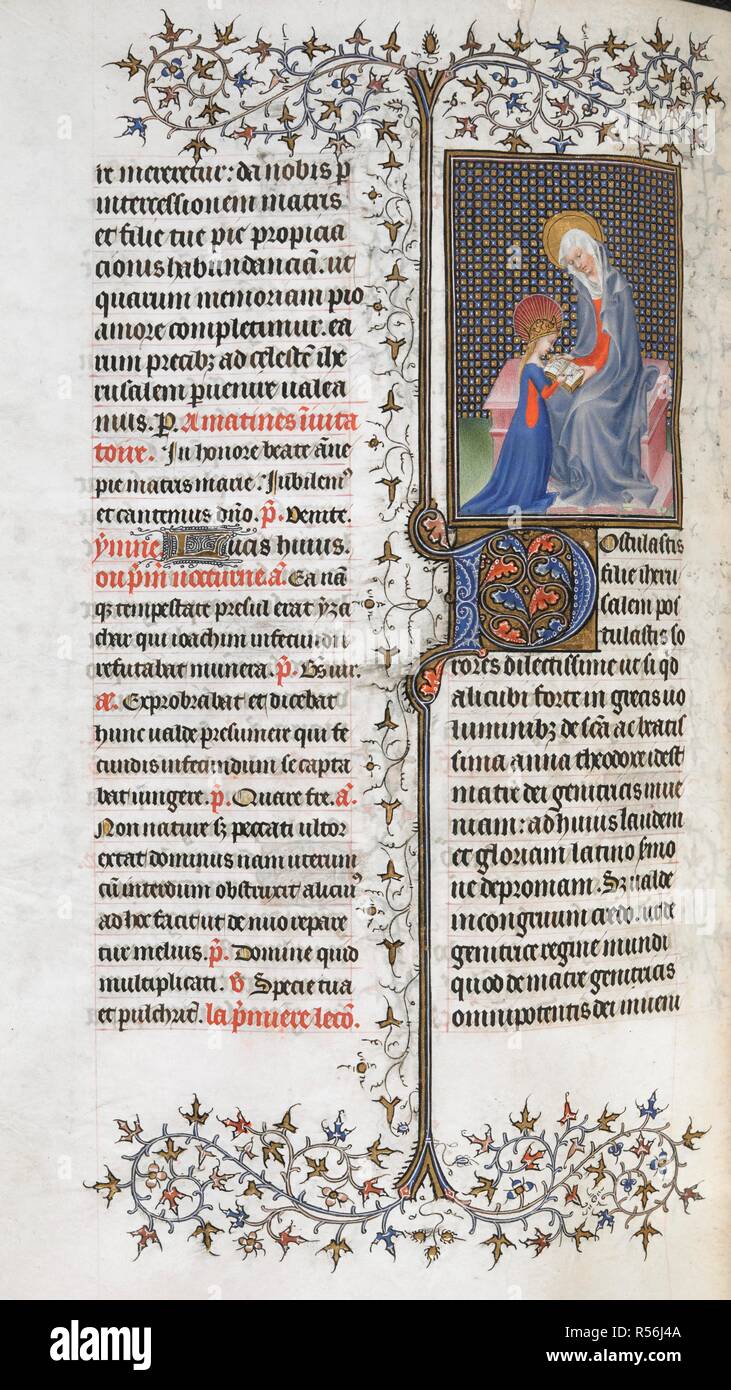 ir mereretur: da nobis p
intercessionem matris
et filie tue pie propicia
cionis habundanciā. ut
quarum memoriam pio
amore complectimur. ea
rum precibȝ ad celestē ihe
rusalem ꝑuenire ualea
mus. P. A matines īuita
toire. In honore beate āne
pie matris marie. Iubilem⁹
et cantemus dño. p̄. Venite.
ymne Lucis huius.
ou p̄m nocturne. a. Ea nā
qȝ tempestate presul erat yza
char qui ioachim infecundū
refutabat munera. p̄. Bs uir.
a. Exprobrabat et dicebat
hunc ualde presumere qui fe
cundis infecundum se capta
bat iungere. p̄. Quare fre. a.
Non nature sȝ peccati ultor
extat dominus nam uterum
cū interdum obstruxit alicui⁹
ad hoc facit ut de nuo repare
tur melius. p̄. Domine quid
multiplicati. v̄ Specie tua
et pulchrit̄. la p̄miere lecō.
Postulastis
filie iheru
salem pos
tulastis so
rores dilectissime ut si qd
alicubi forte in grecis uo
luminibȝ de scā ac beatis
sima anna theodore idest
matre dei genitricis inue
niam: ad huius laudem
et gloriam latino smo
ne depromam. Sȝ ualde
incongruum credo.
genitrice regine mundi
quod de matre genitricis
omnipotentis dei inueni
alamy
alamy
Image ID: R56J4A
www.alamy.com